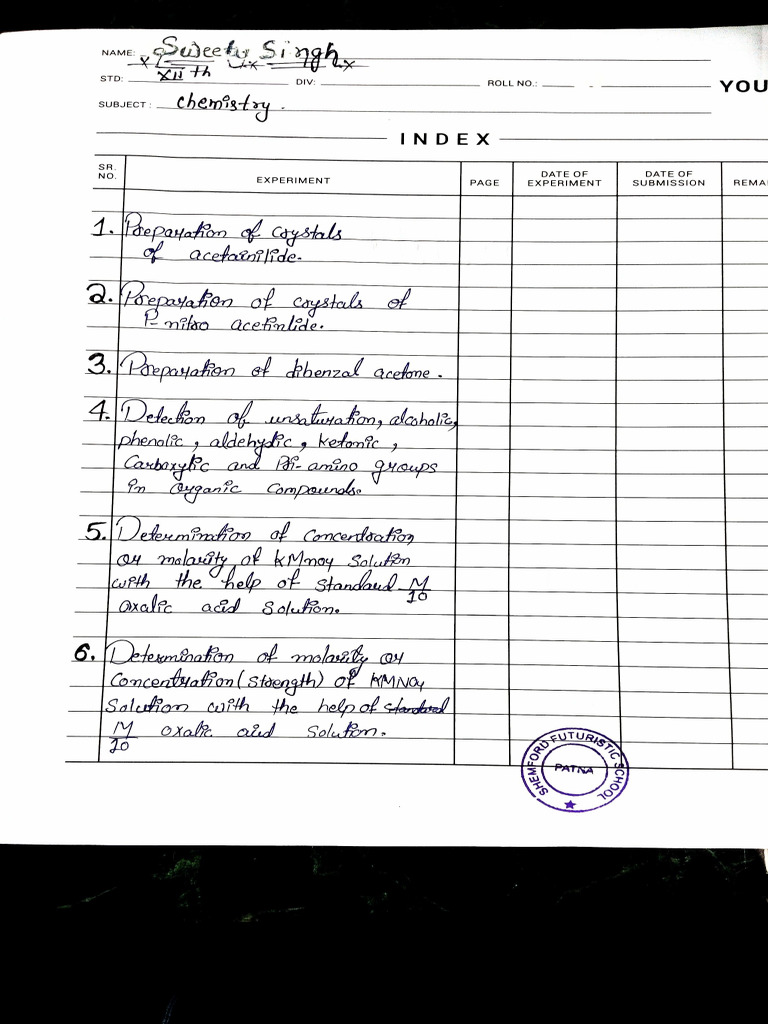 NAME: Sweety Singh
STD: XII th DIV: ROLL NO.:
YOU
SUBJECT: Chemistry.
INDEX
SR. NO. EXPERIMENT PAGE DATE OF EXPERIMENT DATE OF SUBMISSION REMA
1. Preparation of crystals
of acetainilide.
2. Preparation of crystals of
P-nitro acetinlide.
3. Preparation of dibenzal acetone.
4. Detection of unsaturation, alcoholic,
phenolic, aldehydic, ketonic,
Carboxylic and Pri-amino groups
in organic compounds.
5. Determination of concentration
or molarity of KMnO4 Solution
with the help of standard M/10
oxalic acid Solution.
6. Determination of molarity or
Concentration (Strength) of KMNO4
Solution with the help of standard
M/20 oxalic acid Solution.
SHEMFORD FUTURISTIC SCHOOL
PATNA